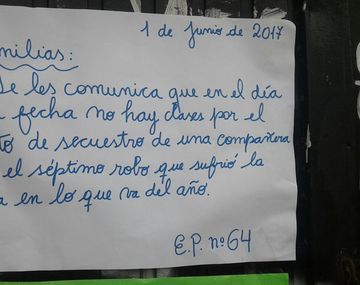 1 de Junio de 2017
milias:
Se les comunica que en el día
fecha no hay clases por el
to de secuestro de una compañera
el séptimo robo que sufrió la
a en lo que va del año.
E.P. nº 64